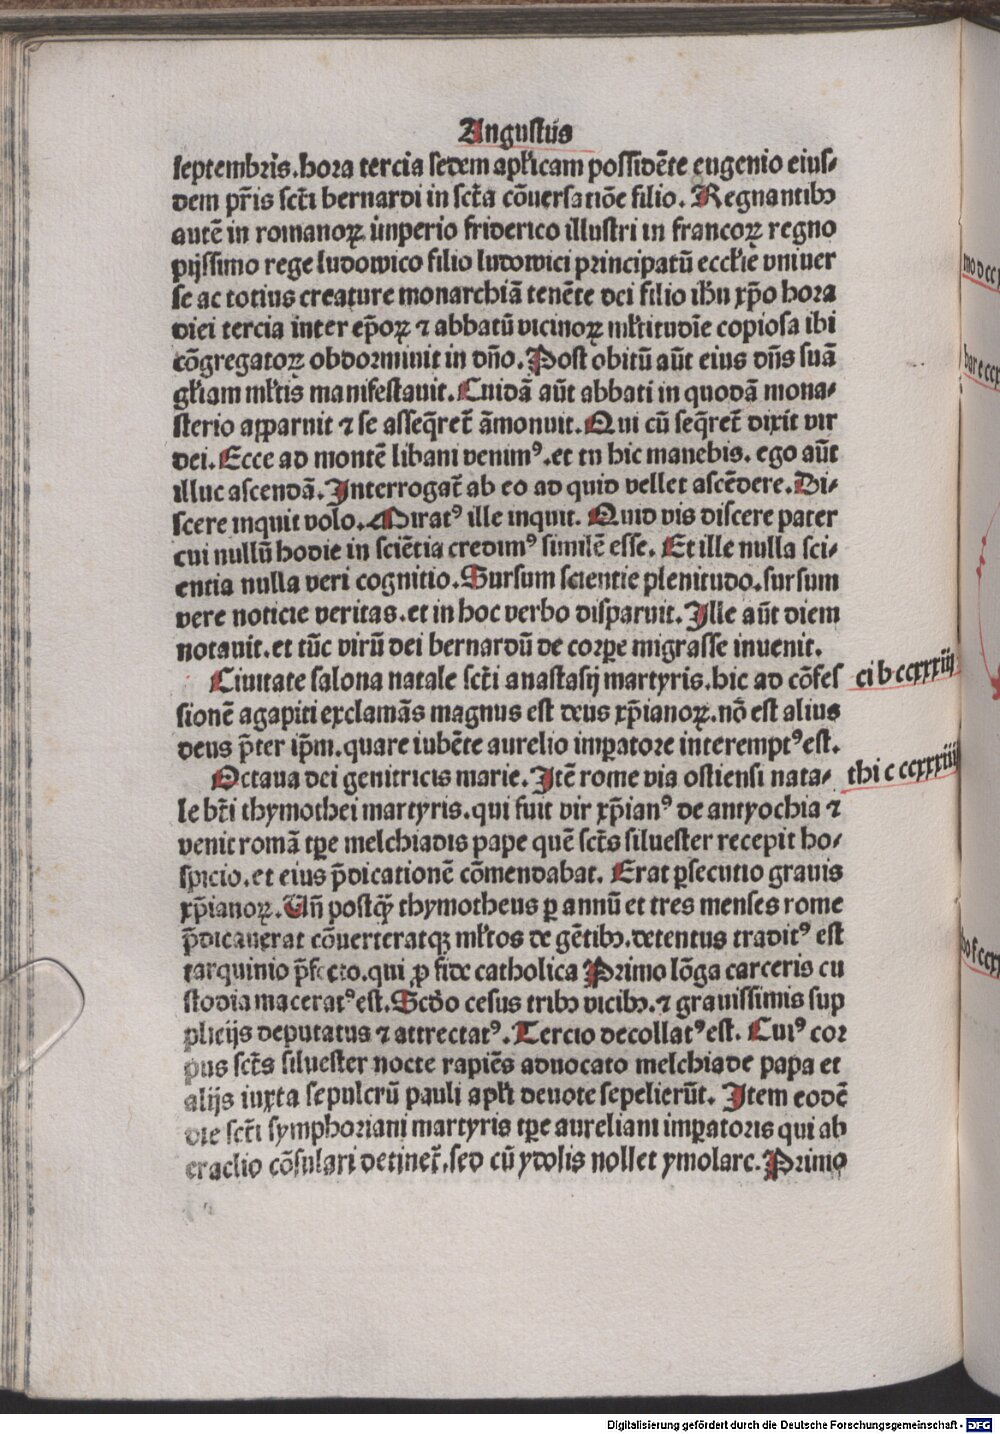 Augustus
septembris. hora tercia sedem apl̃icam possidẽte eugenio eius⸗
dem pr̃is sct̃i bernardi in sct̃a cõuersatiõe filio. Regnantibꝫ
autẽ in romanoꝝ imperio friderico illustri in francoꝝ regno
pijssimo rege ludowico filio ludowici principatũ eccl̃ie vniuer
se ac totius creature monarchiã tenẽte dei filio ihũ xp̃o hora
diei tercia inter ep̃oꝝ ⁊ abbatũ vicinoꝝ ml̃titudĩe copiosa ibi
cõgregatoꝝ obdormiuit in dño. Post obitũ aũt eius dñs suã
gl̃iam ml̃tis manifestauit. Cuidã aũt abbati in quodã mona⸗
sterio apparuit ⁊ se asseq̃ret̃ ãmonuit. Qui cũ seq̃ret̃ dixit vir
dei. Ecce ad montẽ libani venimꝰ. et tu hic manebis. ego aũt
illuc ascendã. Interrogat̃ ab eo ad quid vellet ascẽdere. Di⸗
scere inquit volo. Miratꝰ ille inquit. Quid vis discere pater
cui nullũ hodie in sciẽtia credimꝰ similẽ esse. Et ille nulla sci⸗
entia nulla veri cognitio. Sursum scientie plenitudo. sursum
vere noticie veritas. et in hoc verbo disparuit. Ille aũt diem
notauit. et tũc virũ dei bernardũ de corꝑe migrasse inuenit.
Ciuitate salona natale sct̃i anastasij martyris. hic ad cõfes
sionẽ agapiti exclamãs magnus est deus xp̃ianoꝝ. nõ est alius
deus p̃ter ip̃m. quare iubẽte aurelio imꝑatore interemptꝰ est.
Octaua dei genitricis marie. Itẽ rome via ostiensi nata⸗
le bt̃i thymothei martyris. qui fuit vir xp̃ianꝰ de antyochia ⁊
venit romã tꝑe melchiadis pape quẽ sct̃s siluester recepit ho⸗
spicio. et eius p̃dicationẽ cõmendabat. Erat ꝑsecutio grauis
xp̃ianoꝝ. Uñ postq̃ꝫ thymotheus ꝑ annũ et tres menses rome
p̃dicauerat cõuerteratqꝫ ml̃tos de gẽtibꝫ. detentus traditꝰ est
tarquinio p̃fecto. qui ꝓ fide catholica Primo lõga carceris cu
stodia maceratꝰ est. Scd̃o cesus tribꝫ vicibꝫ. ⁊ grauissimis sup
plicijs deputatus ⁊ attrectatꝰ. Tercio decollatꝰ est. Cuiꝰ cor
pus sct̃s siluester nocte rapiẽs aduocato melchiade papa et
alijs iuxta sepulcrũ pauli apl̃i deuote sepelierũt. Item eodẽ
die sct̃i symphoriani martyris tꝑe aureliani imꝑatoris qui ab
eraclio cõsulari detinet̃. sed cũ ydolis nollet ymolare. Primo
ci b ccxxxiij
thi c ccxxxiiij
Digitalisierung gefördert durch die Deutsche Forschungsgemeinschaft - DFG